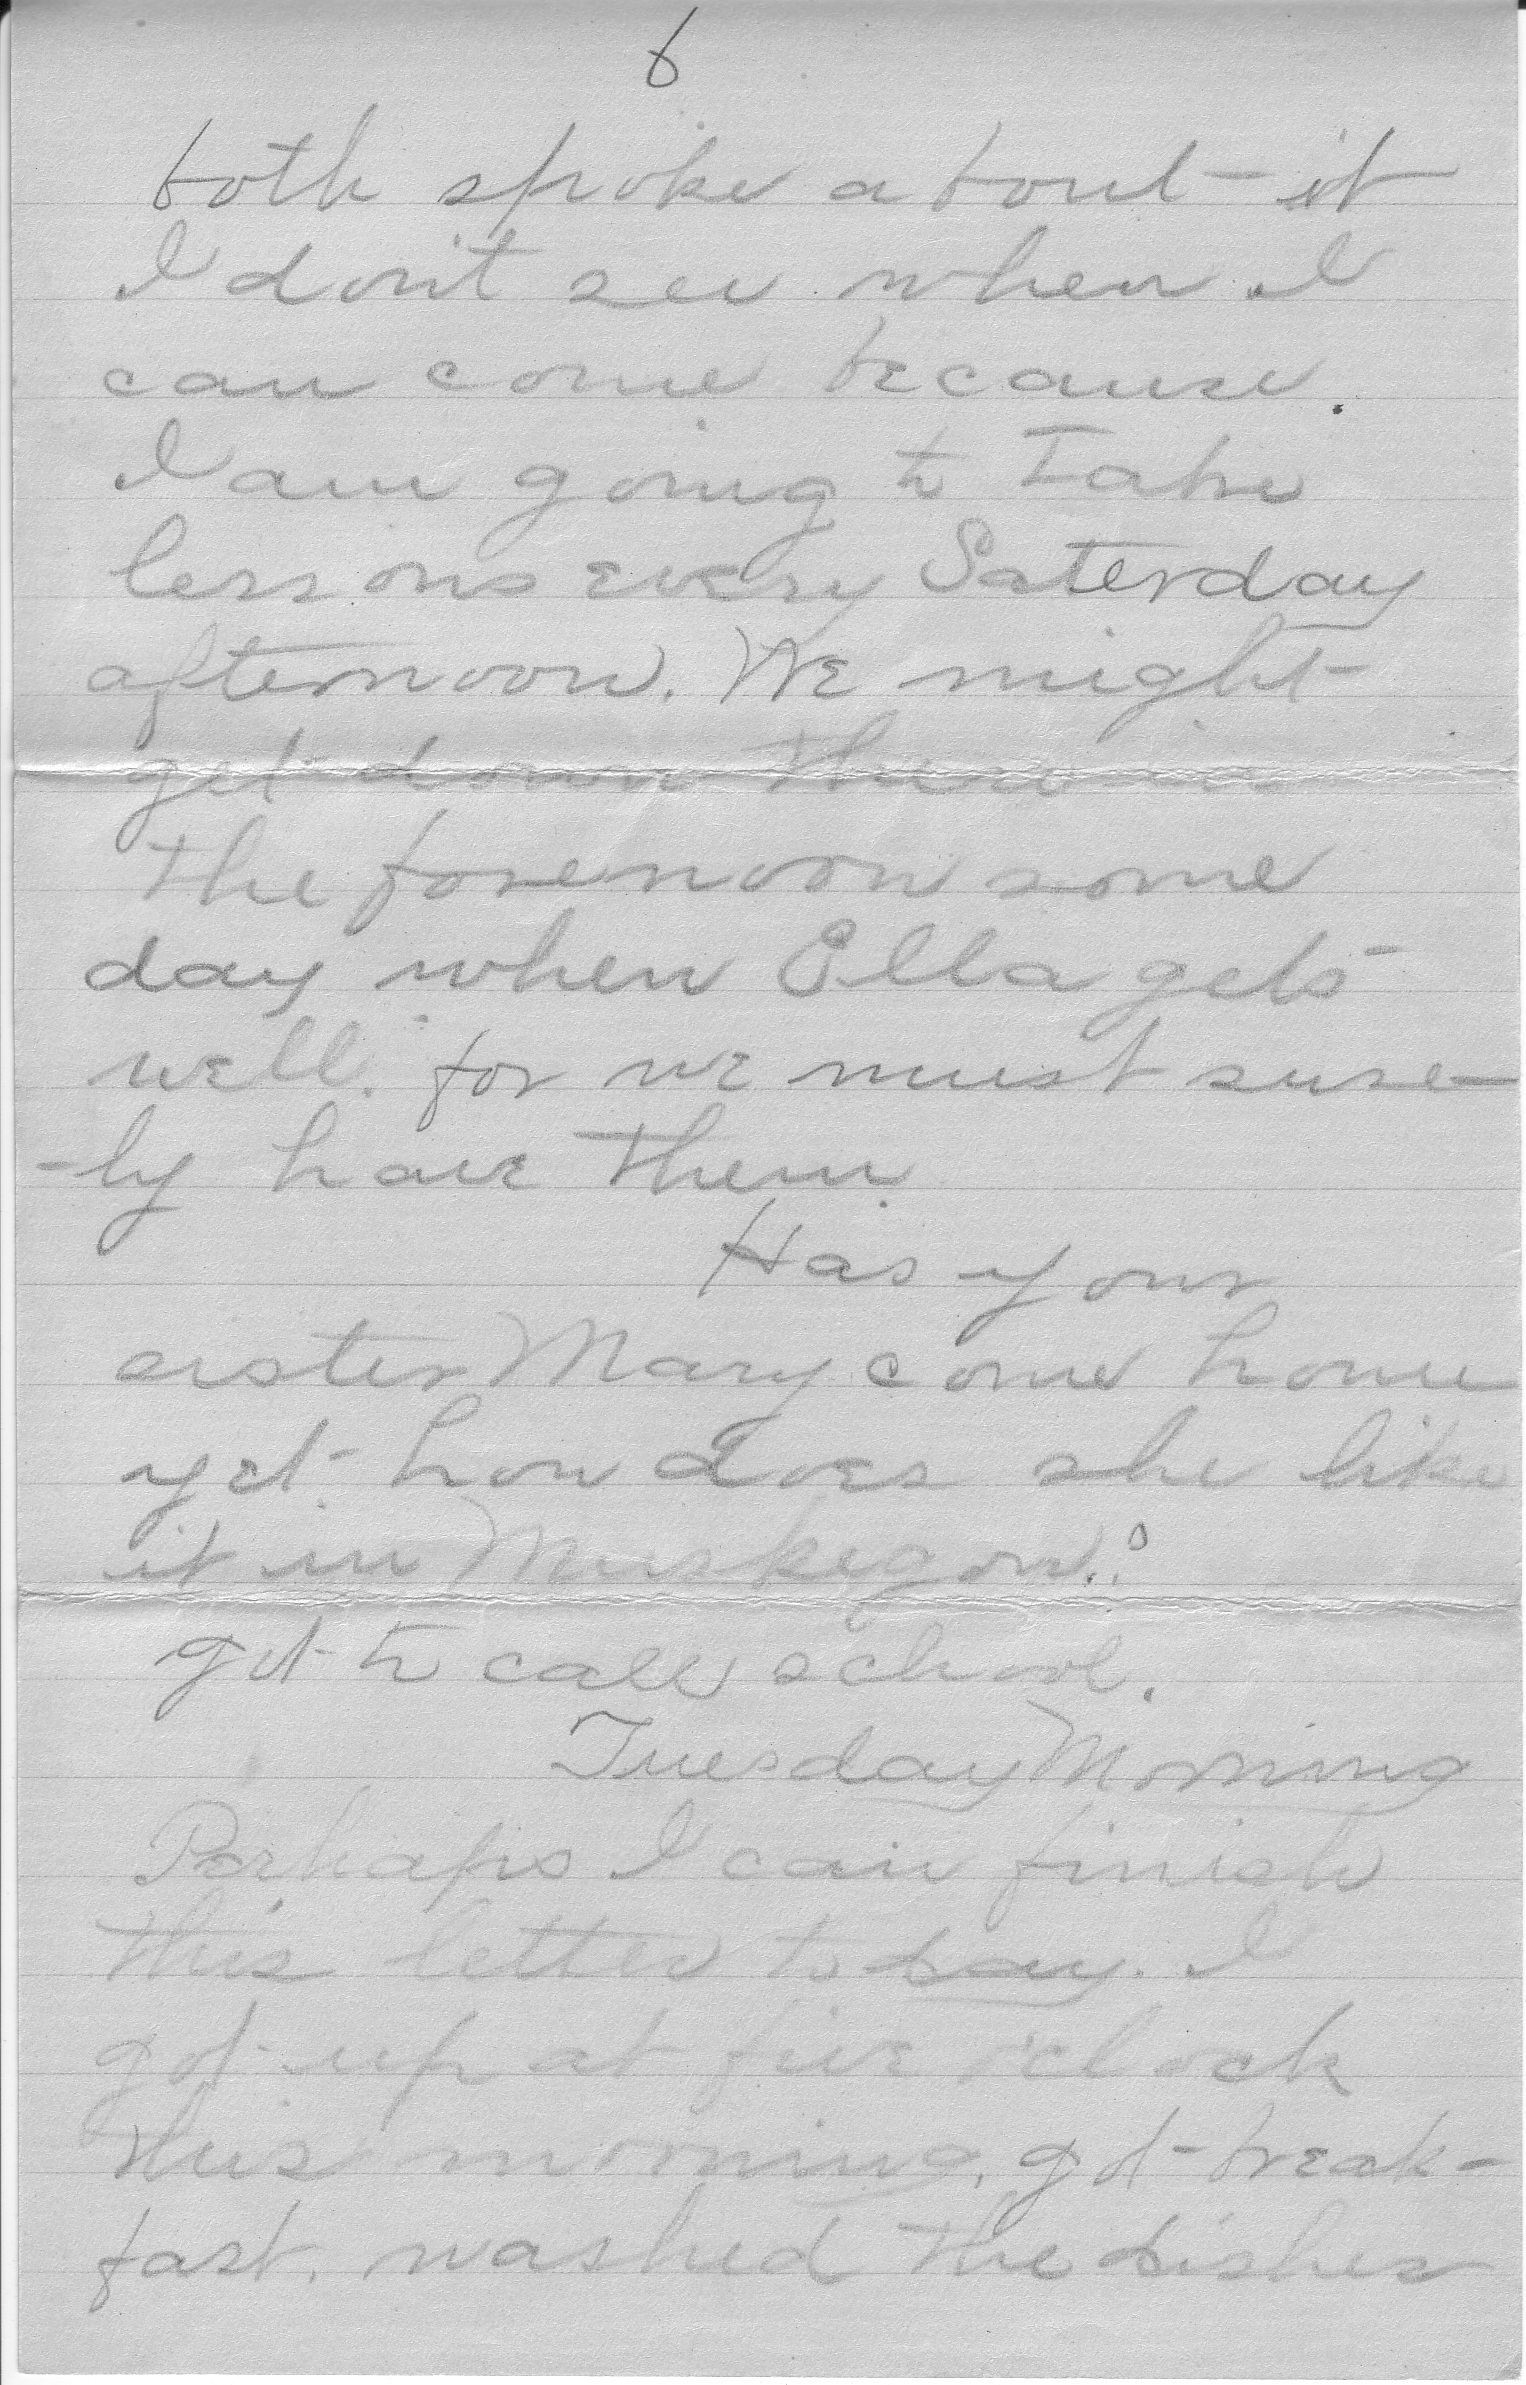 6
both spoke about it
I don't see when I
can come because.
I am going to take
lessons every Saterday
afternoon. We might
get down there in
the forenoon some
day when Ella gets
well. for we must sure-
-ly have them.
Has your
sister Mary come home
yet. how does she like
it in Muskegon.?
got to call school.
Tuesday Morning
Perhaps I can finish
this letter to day. I
got up at five o'clock
this morning, got break-
fast. washed the dishes